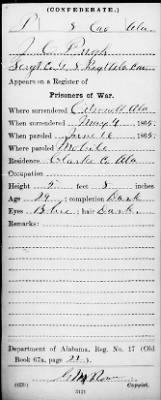 (CONFEDERATE.)
P 8 Cav Ala
J. C. Pugh
Sergt Co. G, 8 Regt Ala Cav
Appears on a Register of
Prisoners of War.
Where surrendered Citronelle Ala
When surrendered May 4, 1865.
When paroled June 16 1865.
Where paroled Mobile
Residence Clarke Co Ala
Occupation
Height 5 feet 8 inches
Age 29; completion Dark
Eyes Blue; hair Dark.
Remarks:
Department of Alabama, Reg. No. 17 (Old
Book 67a, page 21.)
Copyist.